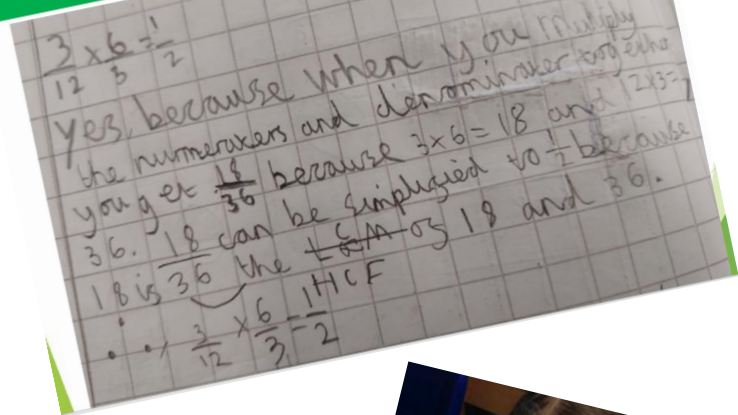 3/12 × 6/3 = 1/2
Yes, because when you multiply
the numerators and denominator together
you get 18/36 because 3×6=18 and 12×3=
36. 18/36 can be simplified to 1/2 because
18 is the LCM of 18 and 36.
HCF
∴, 3/12 × 6/3 = 1/2